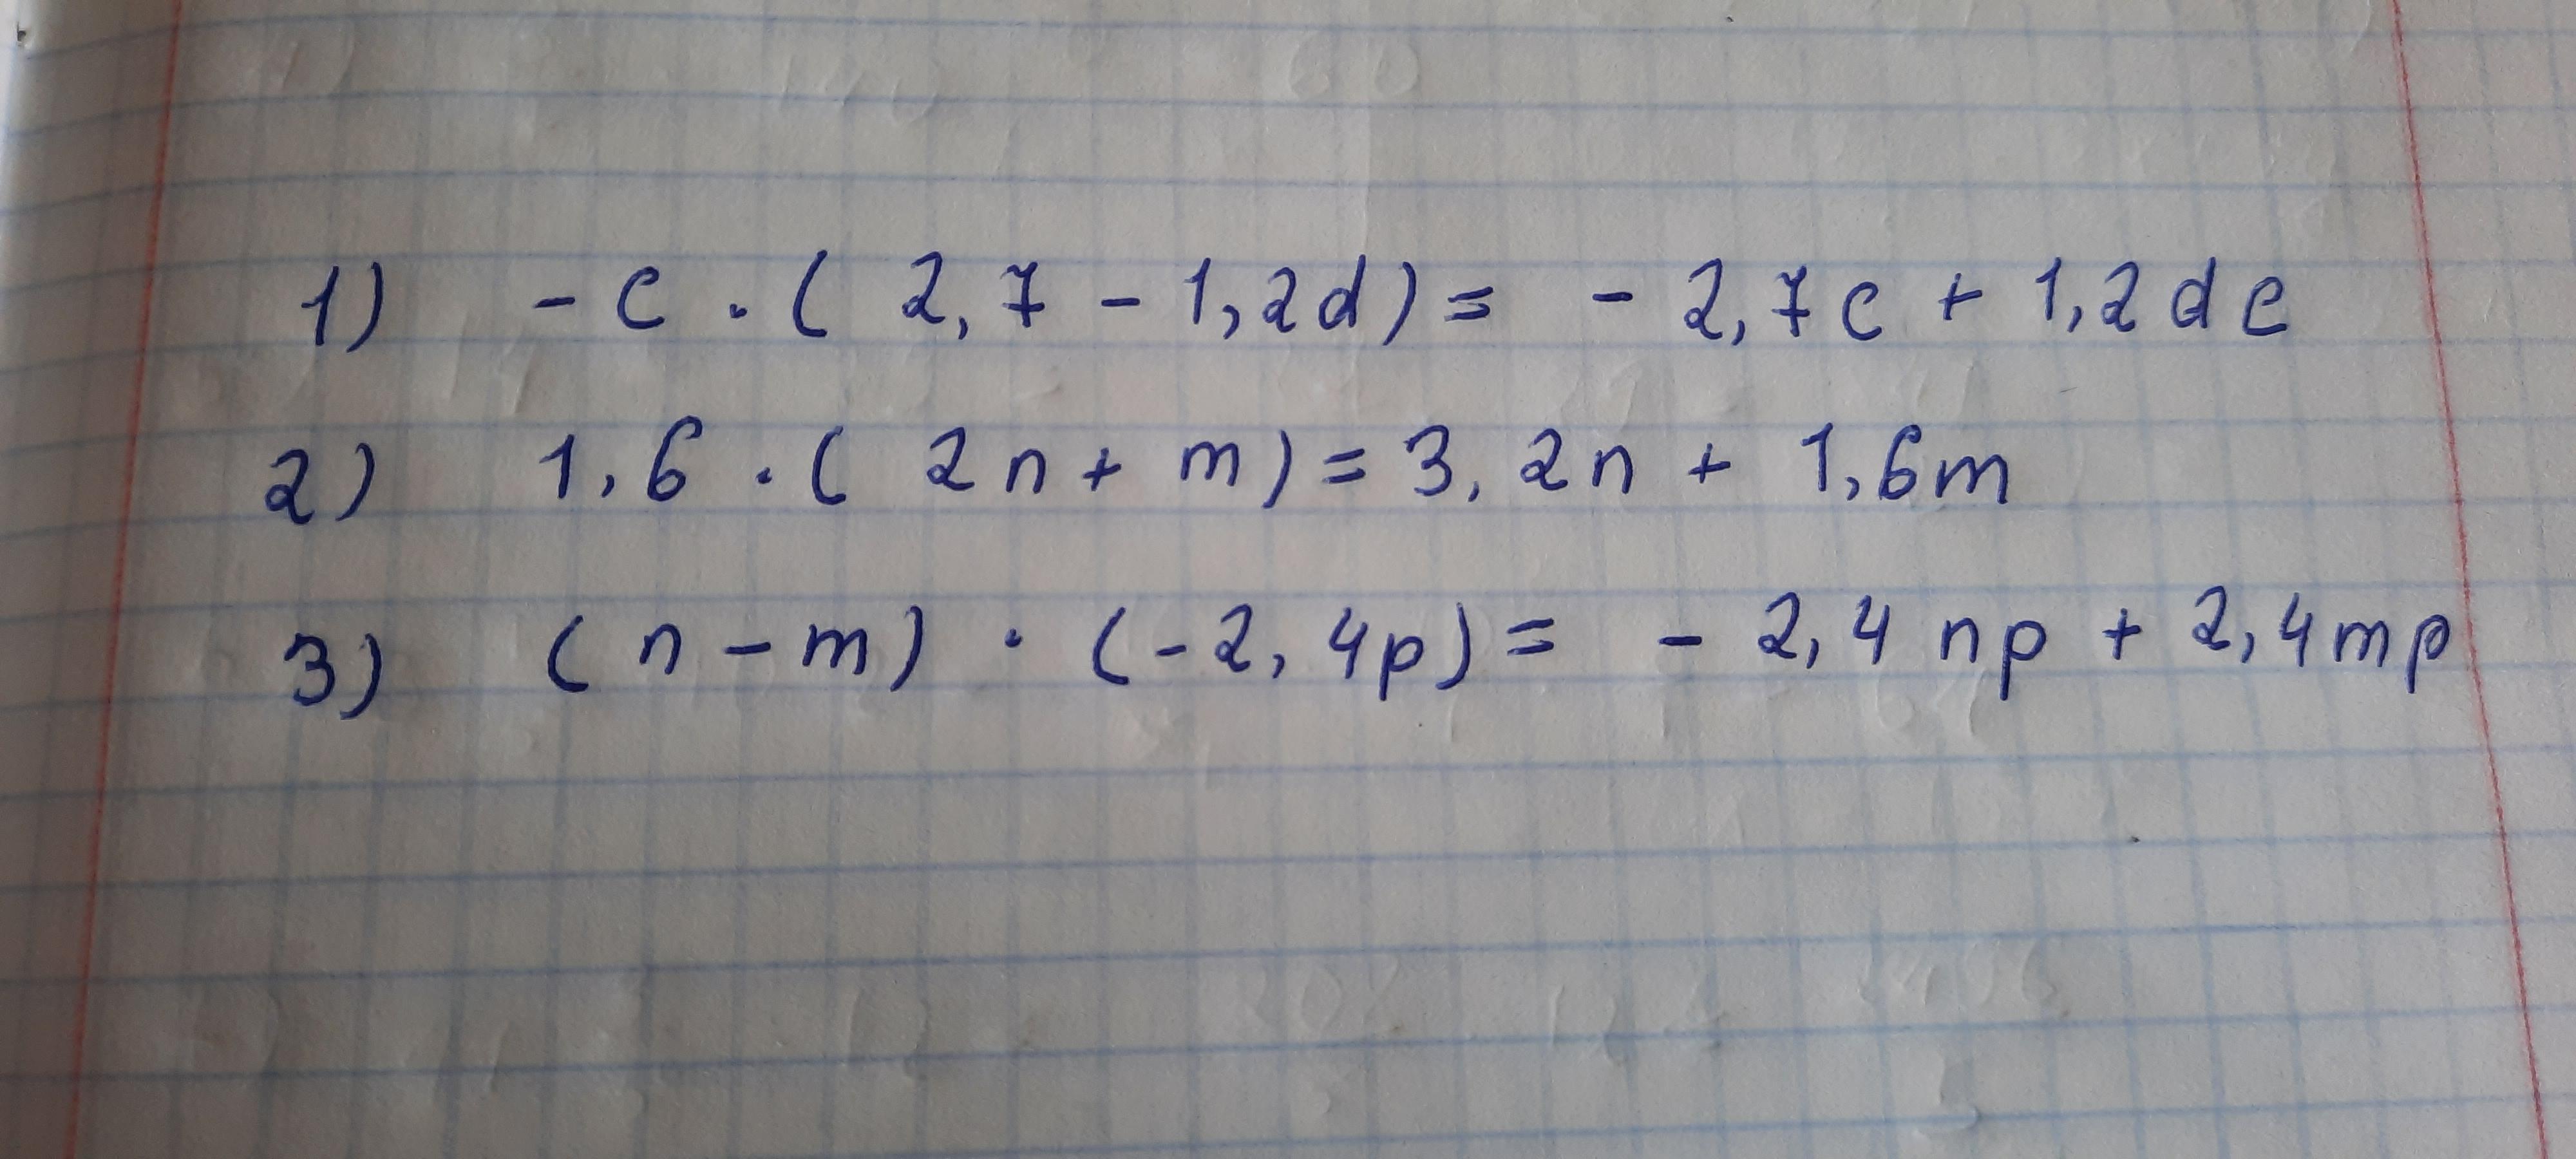 1) - c · ( 2,7 - 1,2d) = - 2,7c + 1,2dc
2) 1,6 · ( 2n + m) = 3,2n + 1,6m
3) ( n - m) · (-2,4p) = - 2,4 np + 2,4mp